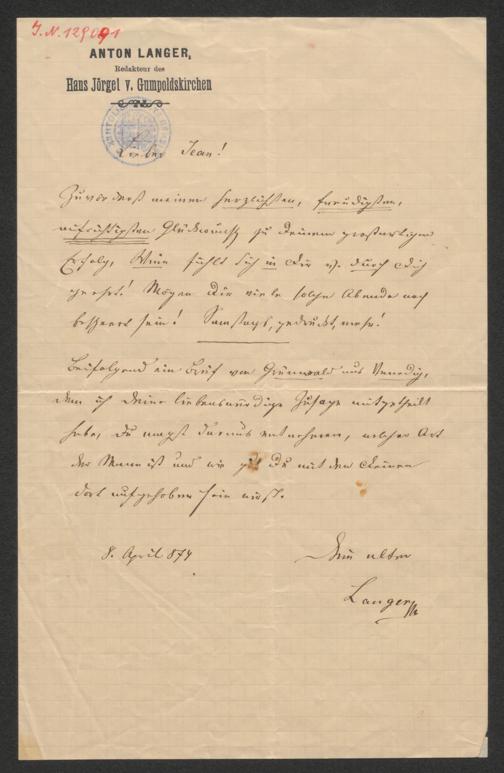 J. N. 129091
ANTON LANGER,
Redakteur des
Hans Jörgel v. Gumpoldskirchen
Lieber Jean!
Zuvörderst meinen herzlichsten, freudigsten,
aufrichtigsten Glückwunsch zu Deinem großartigen
Erfolg, Wien fühlt sich in Dir u. durch Dich
geehrt! Mögen Dir viele solche Abende noch
bescheert sein! Samstags, gedruckt, mehr!
Beifolgend ein Brief von Grünwald aus Venedig,
dem ich Deine liebenswürdige Zusage mitgetheilt
habe, Du magst daraus entnehmen, welcher Art
der Mann ist und wie gut Du mit den Deinen
dort aufgehoben sein wirst.
8. April 874
Dein alter
Langer